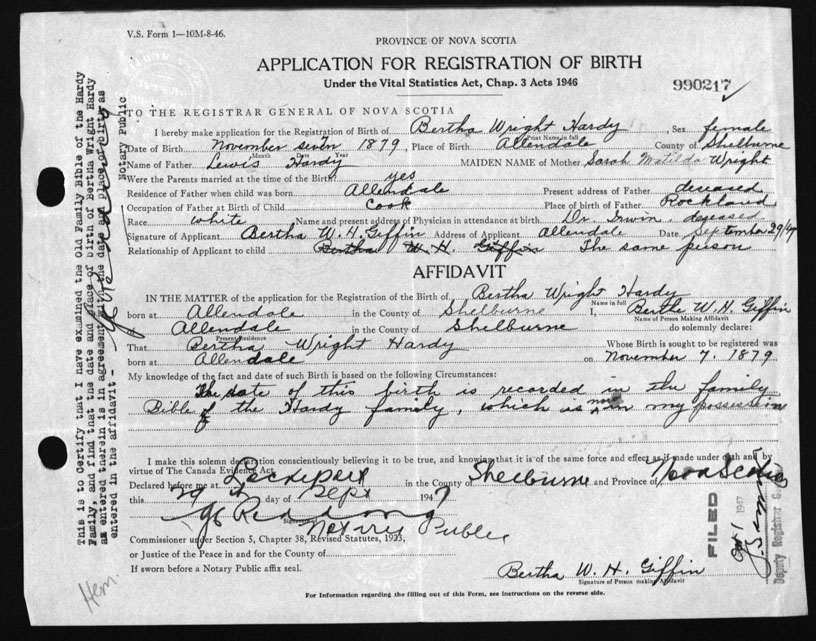 V.S. Form 1—10M-8-46.
PROVINCE OF NOVA SCOTIA
APPLICATION FOR REGISTRATION OF BIRTH
Under the Vital Statistics Act, Chap. 3 Acts 1946
990217
TO THE REGISTRAR GENERAL OF NOVA SCOTIA
I hereby make application for the Registration of Birth of Bertha Wright Hardy, Sex female
Print Name in full
Date of Birth November seven 1879, Place of Birth Allendale County of Shelburne
Month Date Year
Name of Father Lewis Hardy MAIDEN NAME of Mother Sarah Matilda Wright
Were the Parents married at the time of the Birth? yes
Residence of Father when child was born Allendale Present address of Father deceased
Occupation of Father at Birth of Child Cook Place of birth of Father Rockland
Race white Name and present address of Physician in attendance at birth Dr. Irwin, deceased
Signature of Applicant Bertha W. H. Giffin Address of Applicant Allendale Date September 29/47
Relationship of Applicant to child Bertha W. H. Giffin The same person
AFFIDAVIT
IN THE MATTER of the application for the Registration of the Birth of Bertha Wright Hardy
Name in full
born at Allendale in the County of Shelburne I, Bertha W. H. Giffin
Name of Person Making Affidavit
of Allendale in the County of Shelburne do solemnly declare:
Present Residence
That Bertha Wright Hardy Whose Birth is sought to be registered was
born at Allendale on November 7, 1879
My knowledge of the fact and date of such Birth is based on the following Circumstances:
The date of this birth is recorded in the family
Bible of the Hardy family, which is now in my possession
I make this solemn declaration conscientiously believing it to be true, and knowing that it is of the same force and effect as if made under oath and by
virtue of The Canada Evidence Act.
Declared before me at Lockeport in the County of Shelburne and Province of Nova Scotia
this 29th day of Sept 1947
Notary Public
Commissioner under Section 5, Chapter 38, Revised Statutes, 1923,
or Justice of the Peace in and for the County of
If sworn before a Notary Public affix seal.
Bertha W. H. Giffin
Signature of Person making Affidavit
For Information regarding the filling out of this Form, see instructions on the reverse side.
This is to certify that I have examined the Old Family Bible of the Hardy
Family, and find that the date and place of birth of Bertha Wright Hardy
as entered therein is in agreement with the date and place of birth as
entered in the affidavit -
Notary Public
FILED
Oct 1 1947
Deputy Registrar G
Hem.